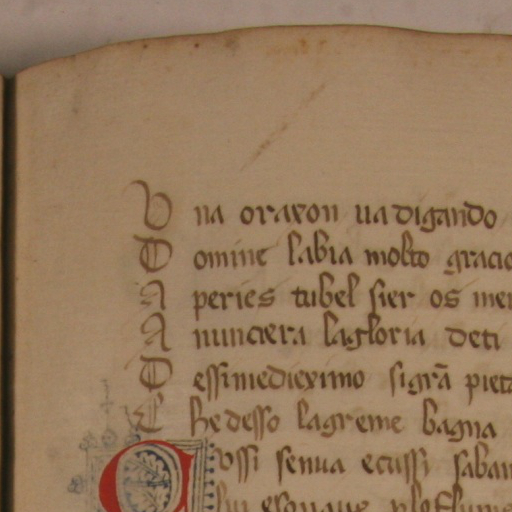 Una oraxon ua digando
Domine labia molto gracio
Aperies tu bel sier os me
Anunciera la gloria de ti
Dessi medieximo sigrã piet
Che desso lagreme bagna
Cossi senua ecussi saba